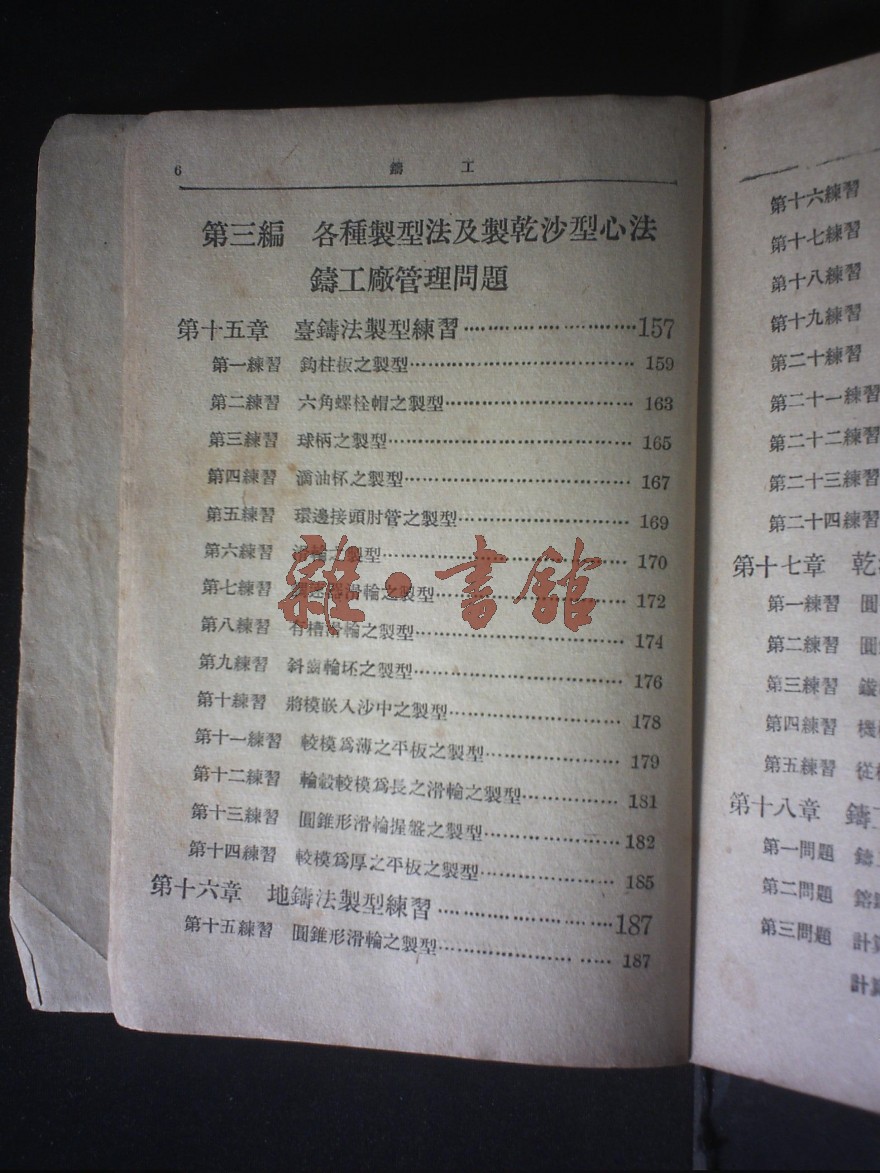 6 鑄 工
第三編 各種製型法及製乾沙型心法
鑄工廠管理問題
第十五章 臺鑄法製型練習……………………157
第一練習 鈎柱板之製型……………………159
第二練習 六角螺栓帽之製型……………………163
第三練習 球柄之製型……………………165
第四練習 滴油杯之製型……………………167
第五練習 環邊接頭肘管之製型……………………169
第六練習 滑輪之製型……………………170
第七練習 滑輪之製型……………………172
第八練習 有槽滑輪之製型……………………174
第九練習 斜齒輪坯之製型……………………176
第十練習 將模嵌入沙中之製型……………………178
第十一練習 較模爲薄之平板之製型……………………179
第十二練習 輪轂較模爲長之滑輪之製型……………………181
第十三練習 圓錐形滑輪握盤之製型……………………182
第十四練習 較模爲厚之平板之製型……………………185
第十六章 地鑄法製型練習……………………187
第十五練習 圓錐形滑輪之製型……………………187
雜·書館
第十六練習
第十七練習
第十八練習
第十九練習
第二十練習
第二十一練習
第二十二練習
第二十三練習
第二十四練習
第十七章 乾
第一練習 圓
第二練習 圓
第三練習
第四練習 機
第五練習 從
第十八章 鑄
第一問題 鑄
第二問題 鎔
第三問題 計算
計算